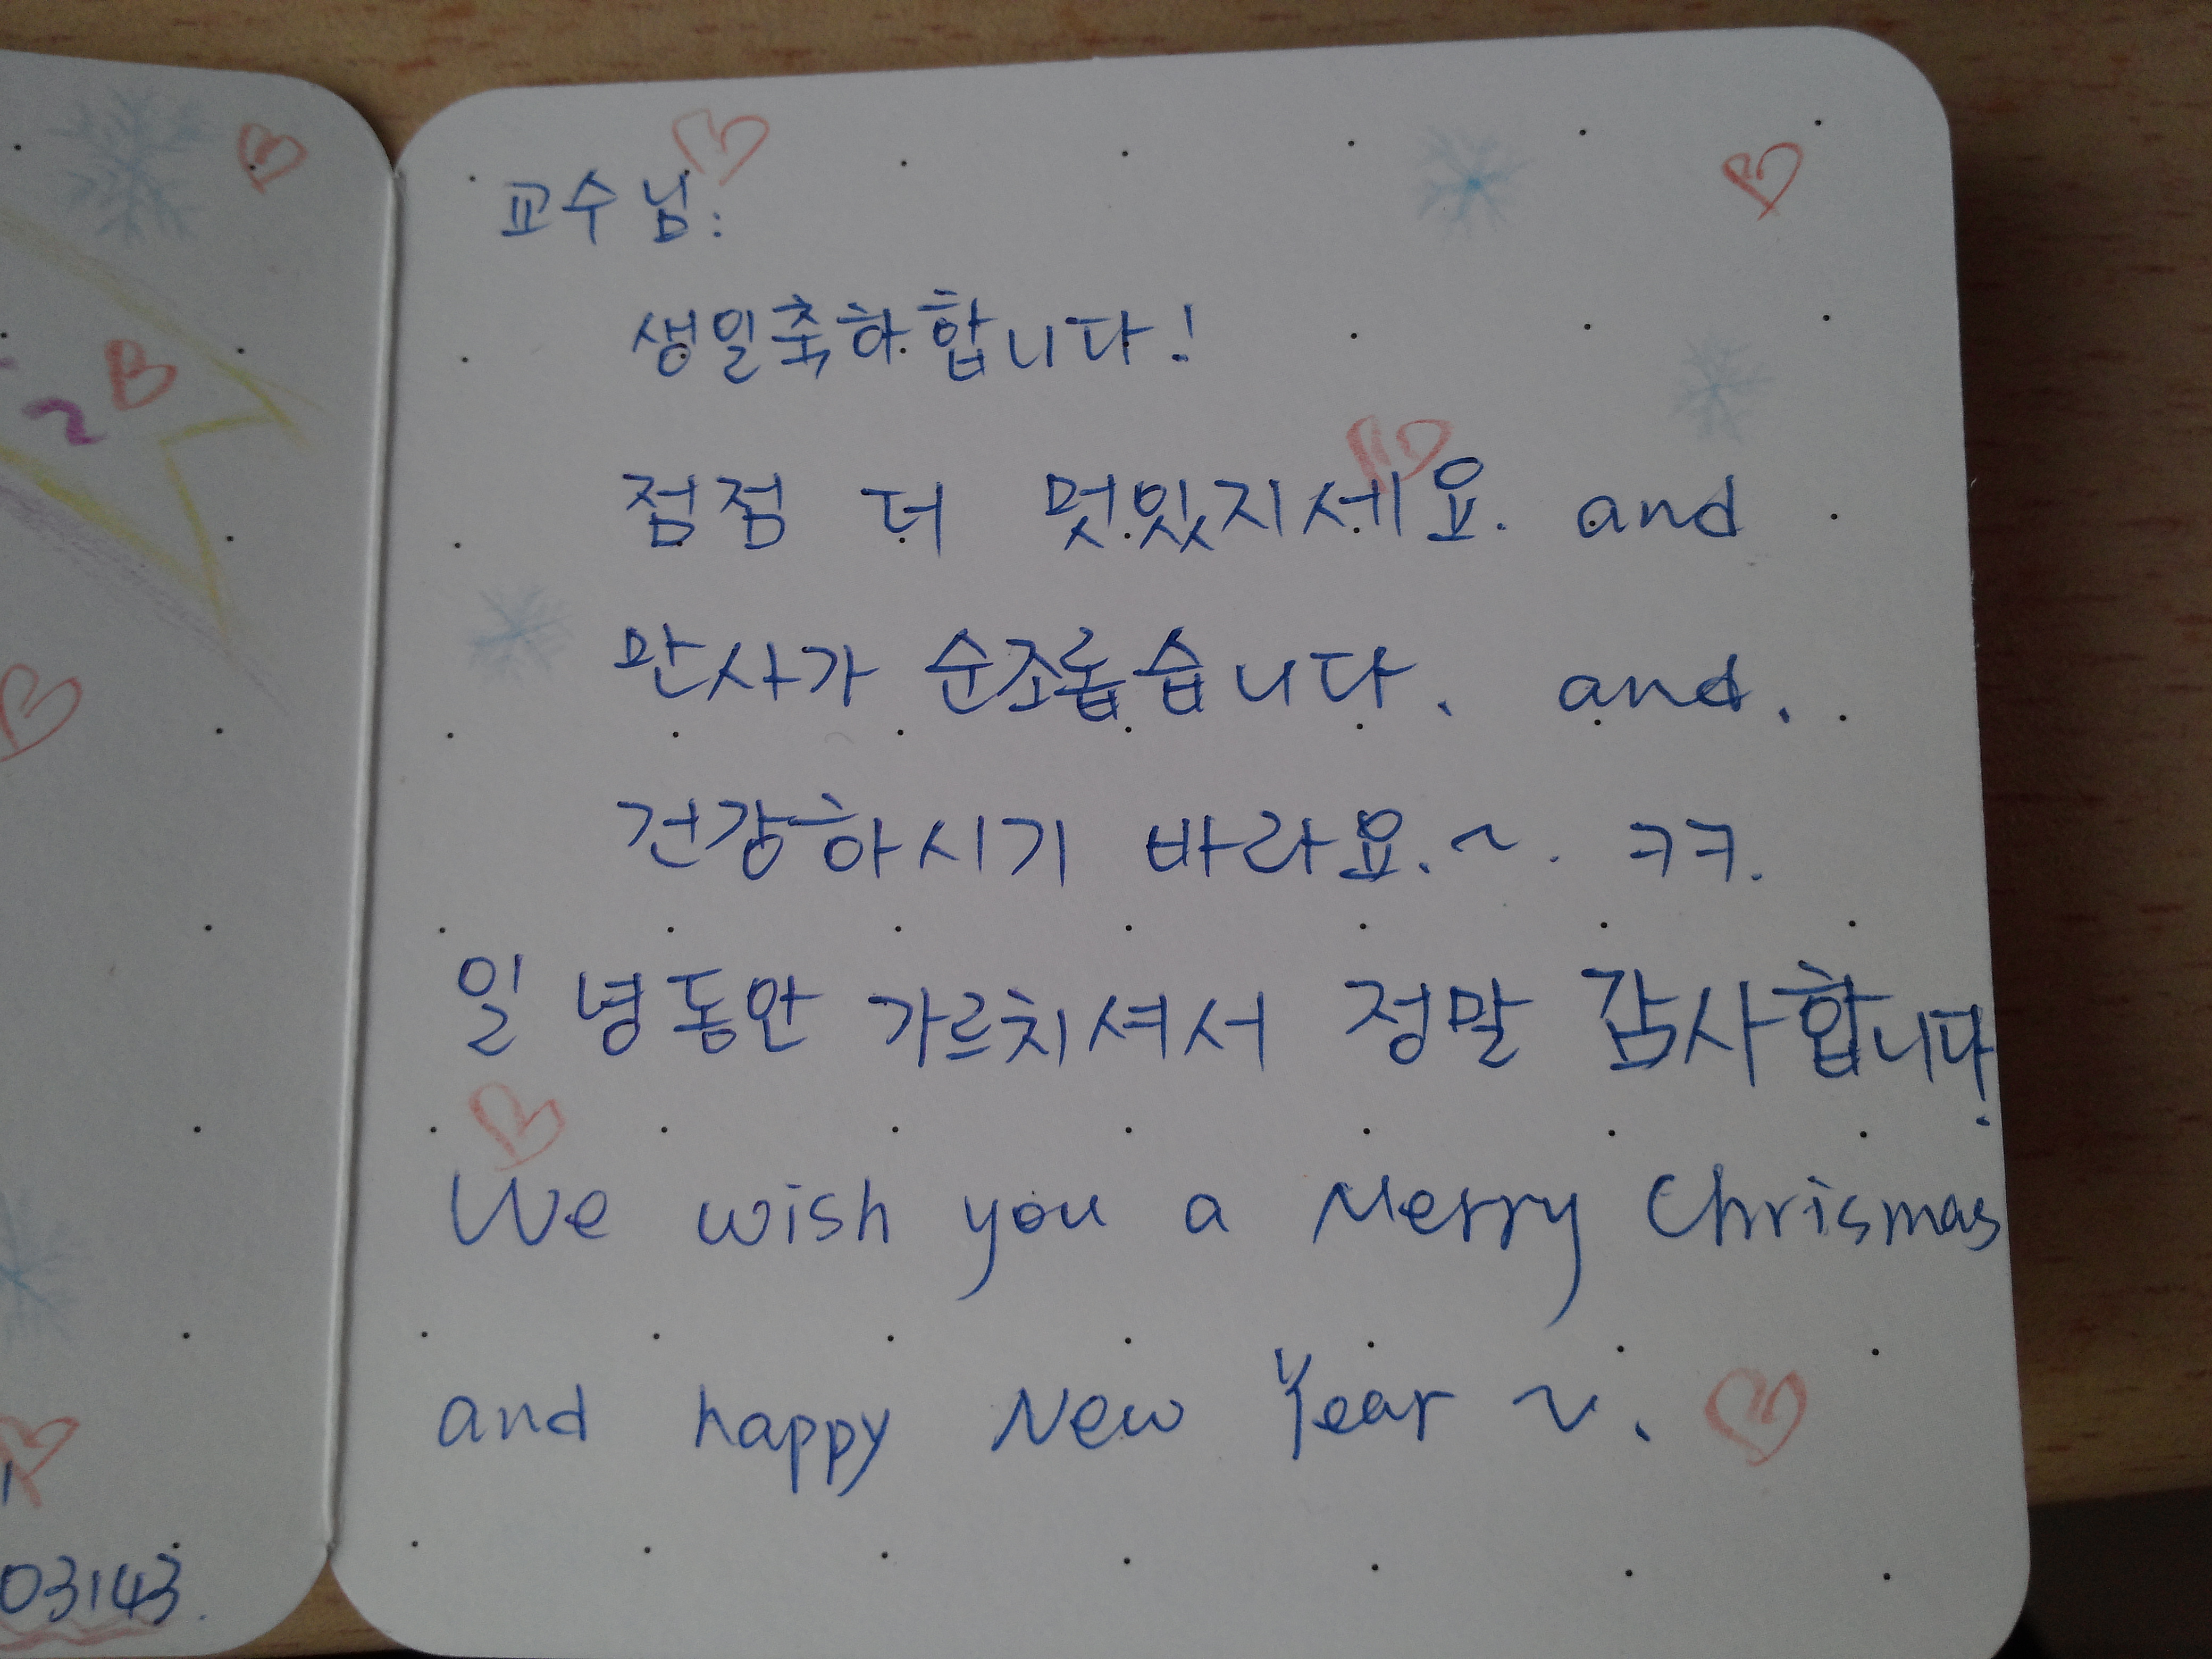 교수님:
생일축하합니다!
점점 더 멋있지세요. and
만사가 순조롭습니다. and.
건강하시기 바라요.~. ㅋㅋ.
일 녕동안 가르치셔서 정말 감사합니다!
We wish you a Merry Chrismas
and happy New Year ~.
03143.